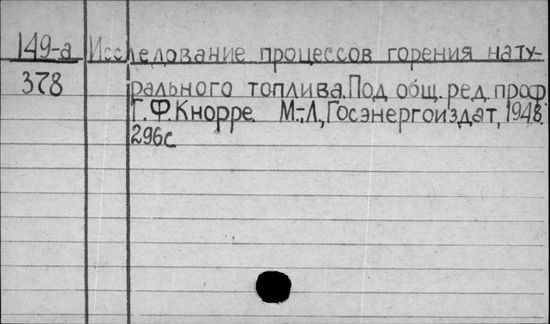 149-а Исследование процессов горения нату-
378 рального топлива. Под общ. ред. проф.
Г.Ф. Кнорре. М.-Л., Госэнергоиздат, 1948.
296с.